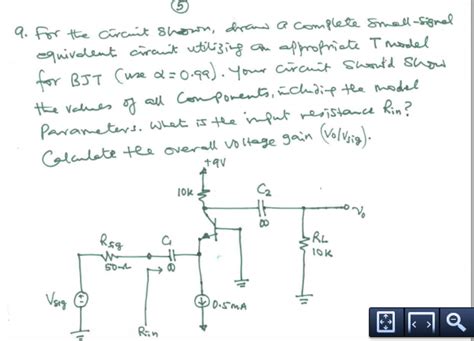 5
9. For the circuit shown, draw a complete small-signal
equivalent circuit utilizing an appropriate T model
for BJT (use α = 0.99). Your circuit should show
the values of all components, including the model
parameters. What is the input resistance Rin?
Calculate the overall voltage gain (Vo/Vsig).
+9V
10K
C2
∞
Vo
RL
10K
Rsig
50Ω
C1
∞
Vsig
0.5mA
Rin